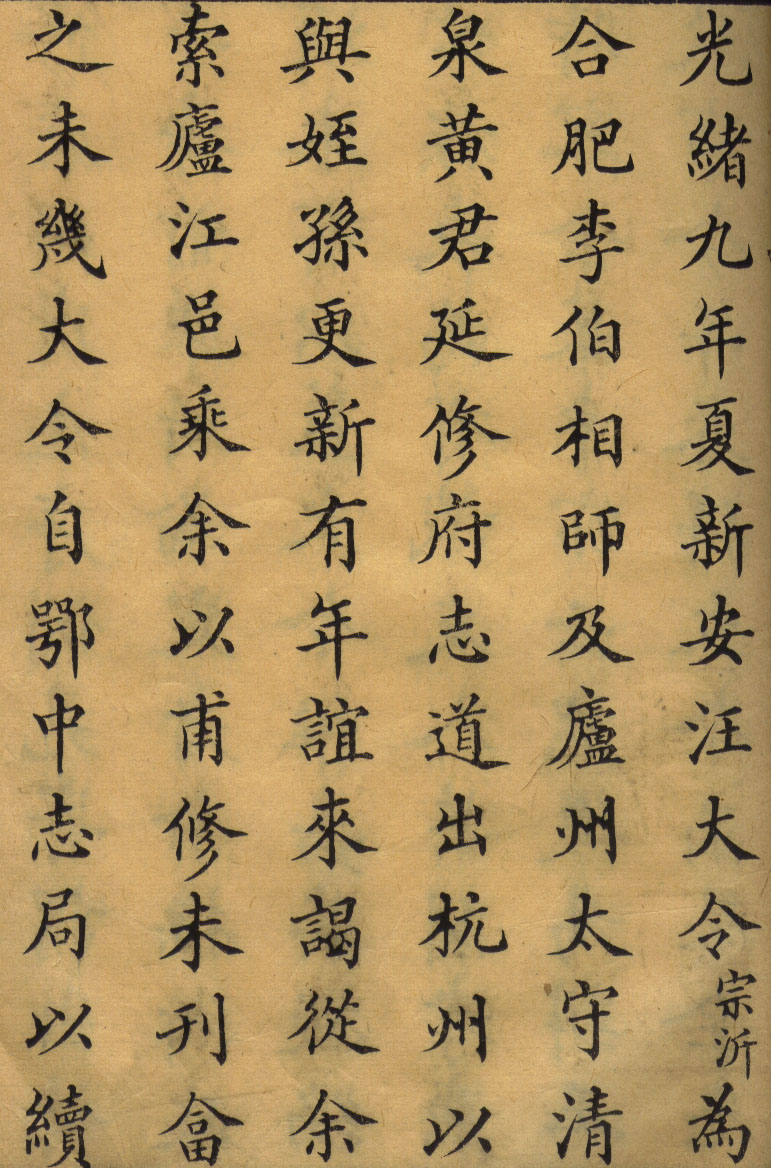 光緒九年夏新安汪大令宗沂為
合肥李伯相師及廬州太守清
泉黃君延修府志道出杭州以
與姪孫更新有年誼來謁從余
索廬江邑乘余以甫修未刊畣
之未幾大令自鄂中志局以續